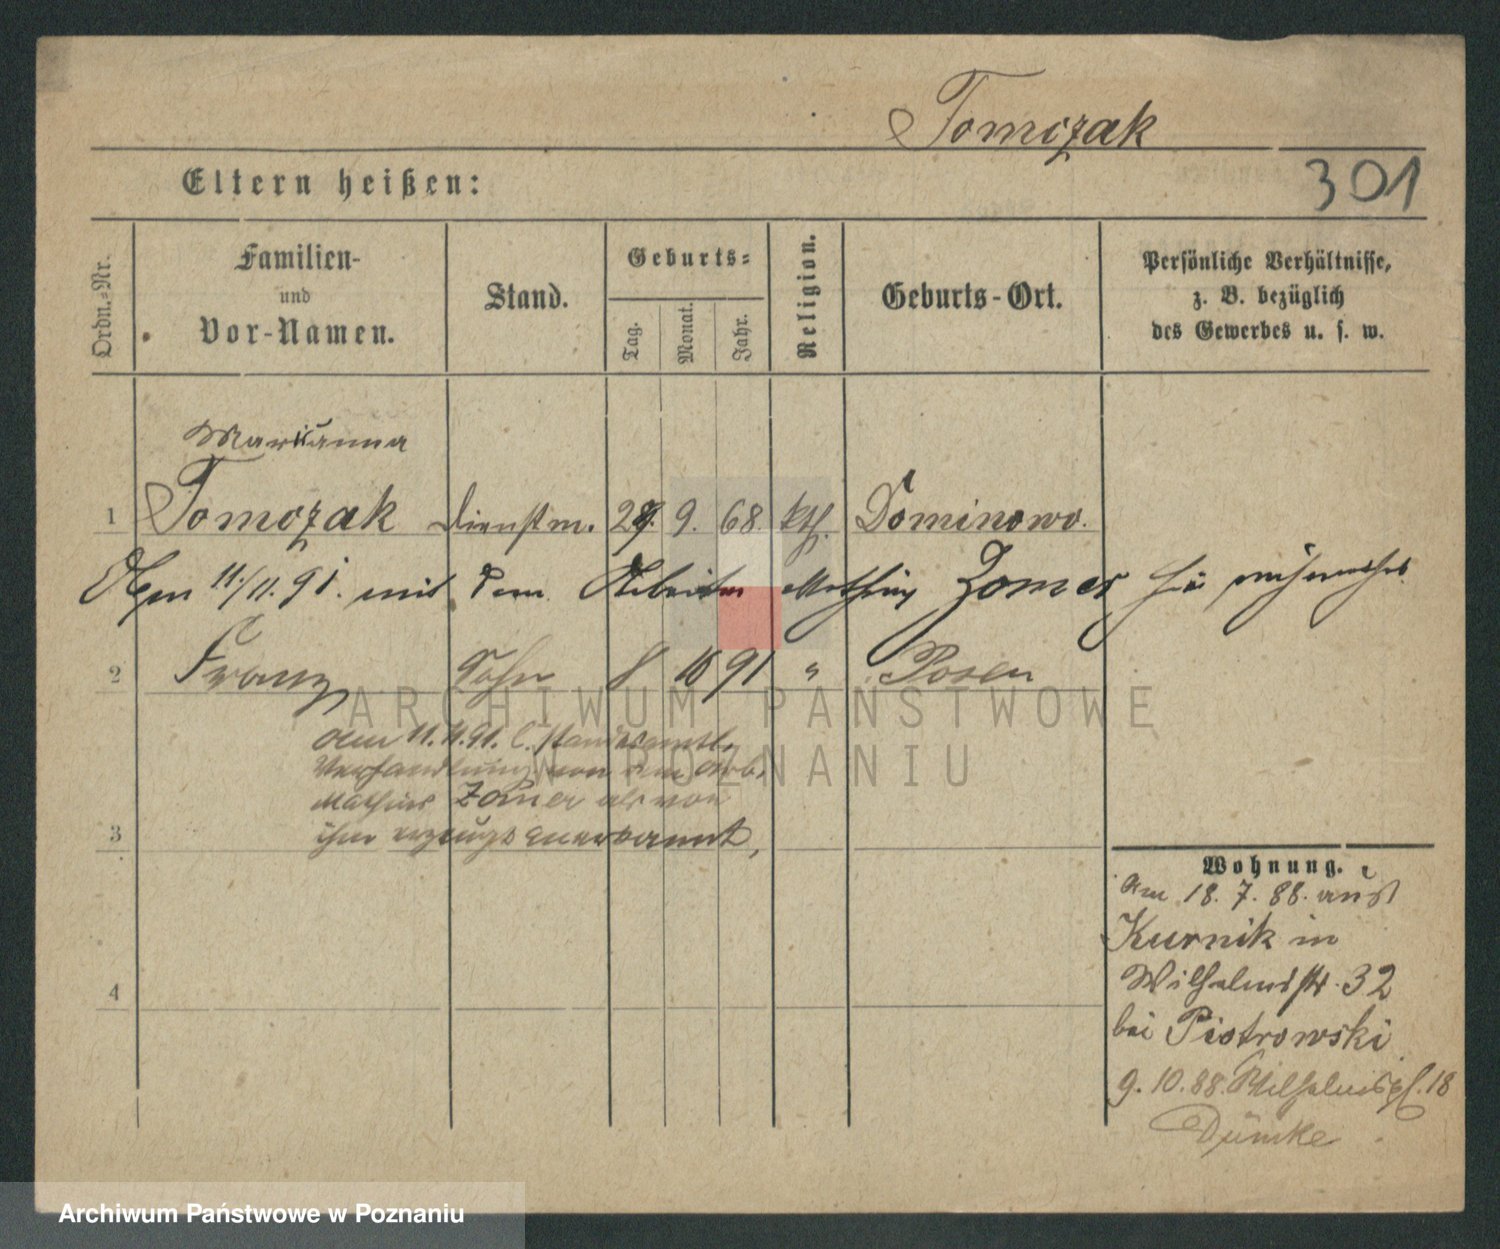 Tomczak
301
Eltern heißen:
Ordn.-Nr.
Familien-
und
Vor-Namen.
Stand.
Geburts-
Tag.
Monat.
Jahr.
Religion.
Geburts-Ort.
Persönliche Verhältnisse,
z. B. bezüglich
des Gewerbes u. s. w.
Marianna
1 Tomczak Dienstm. 9. 68. kth. Dominowo.
11./11. 91. mit dem Arbeiter Mathias Zomer
2 Franz Sohn 8 10 91 " Posen
ARCHIWUM PAŃSTWOWE
W POZNANIU
dem 11.11.91. l. standesamtl.
Verhandlung von dem Arb.
Mathias Zomer als von
3 ihm erzeugt anerkannt,
4
Wohnung.
Am 18. 7. 88. aus
Kurnik in
Wilhelmstr. 32
bei Piotrowski
9. 10. 88. Wilhelmspl. 18
Dümke
Archiwum Państwowe w Poznaniu